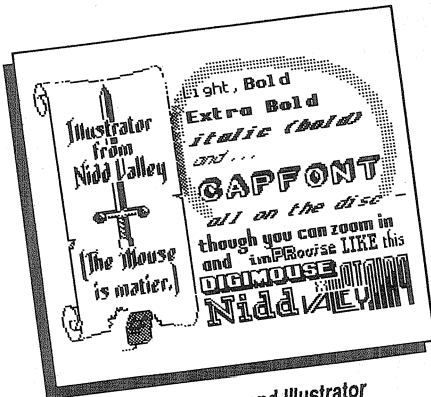 Illustrator
from
Nidd Valley
(The Mouse
is matier.)
Light, Bold
Extra Bold
italic (bold)
and...
CAPFONT
all on the disc
though you can zoom in
and imPRovise LIKE this
DIGIMOUSE
Nidd VALLEY
nd Illustrator